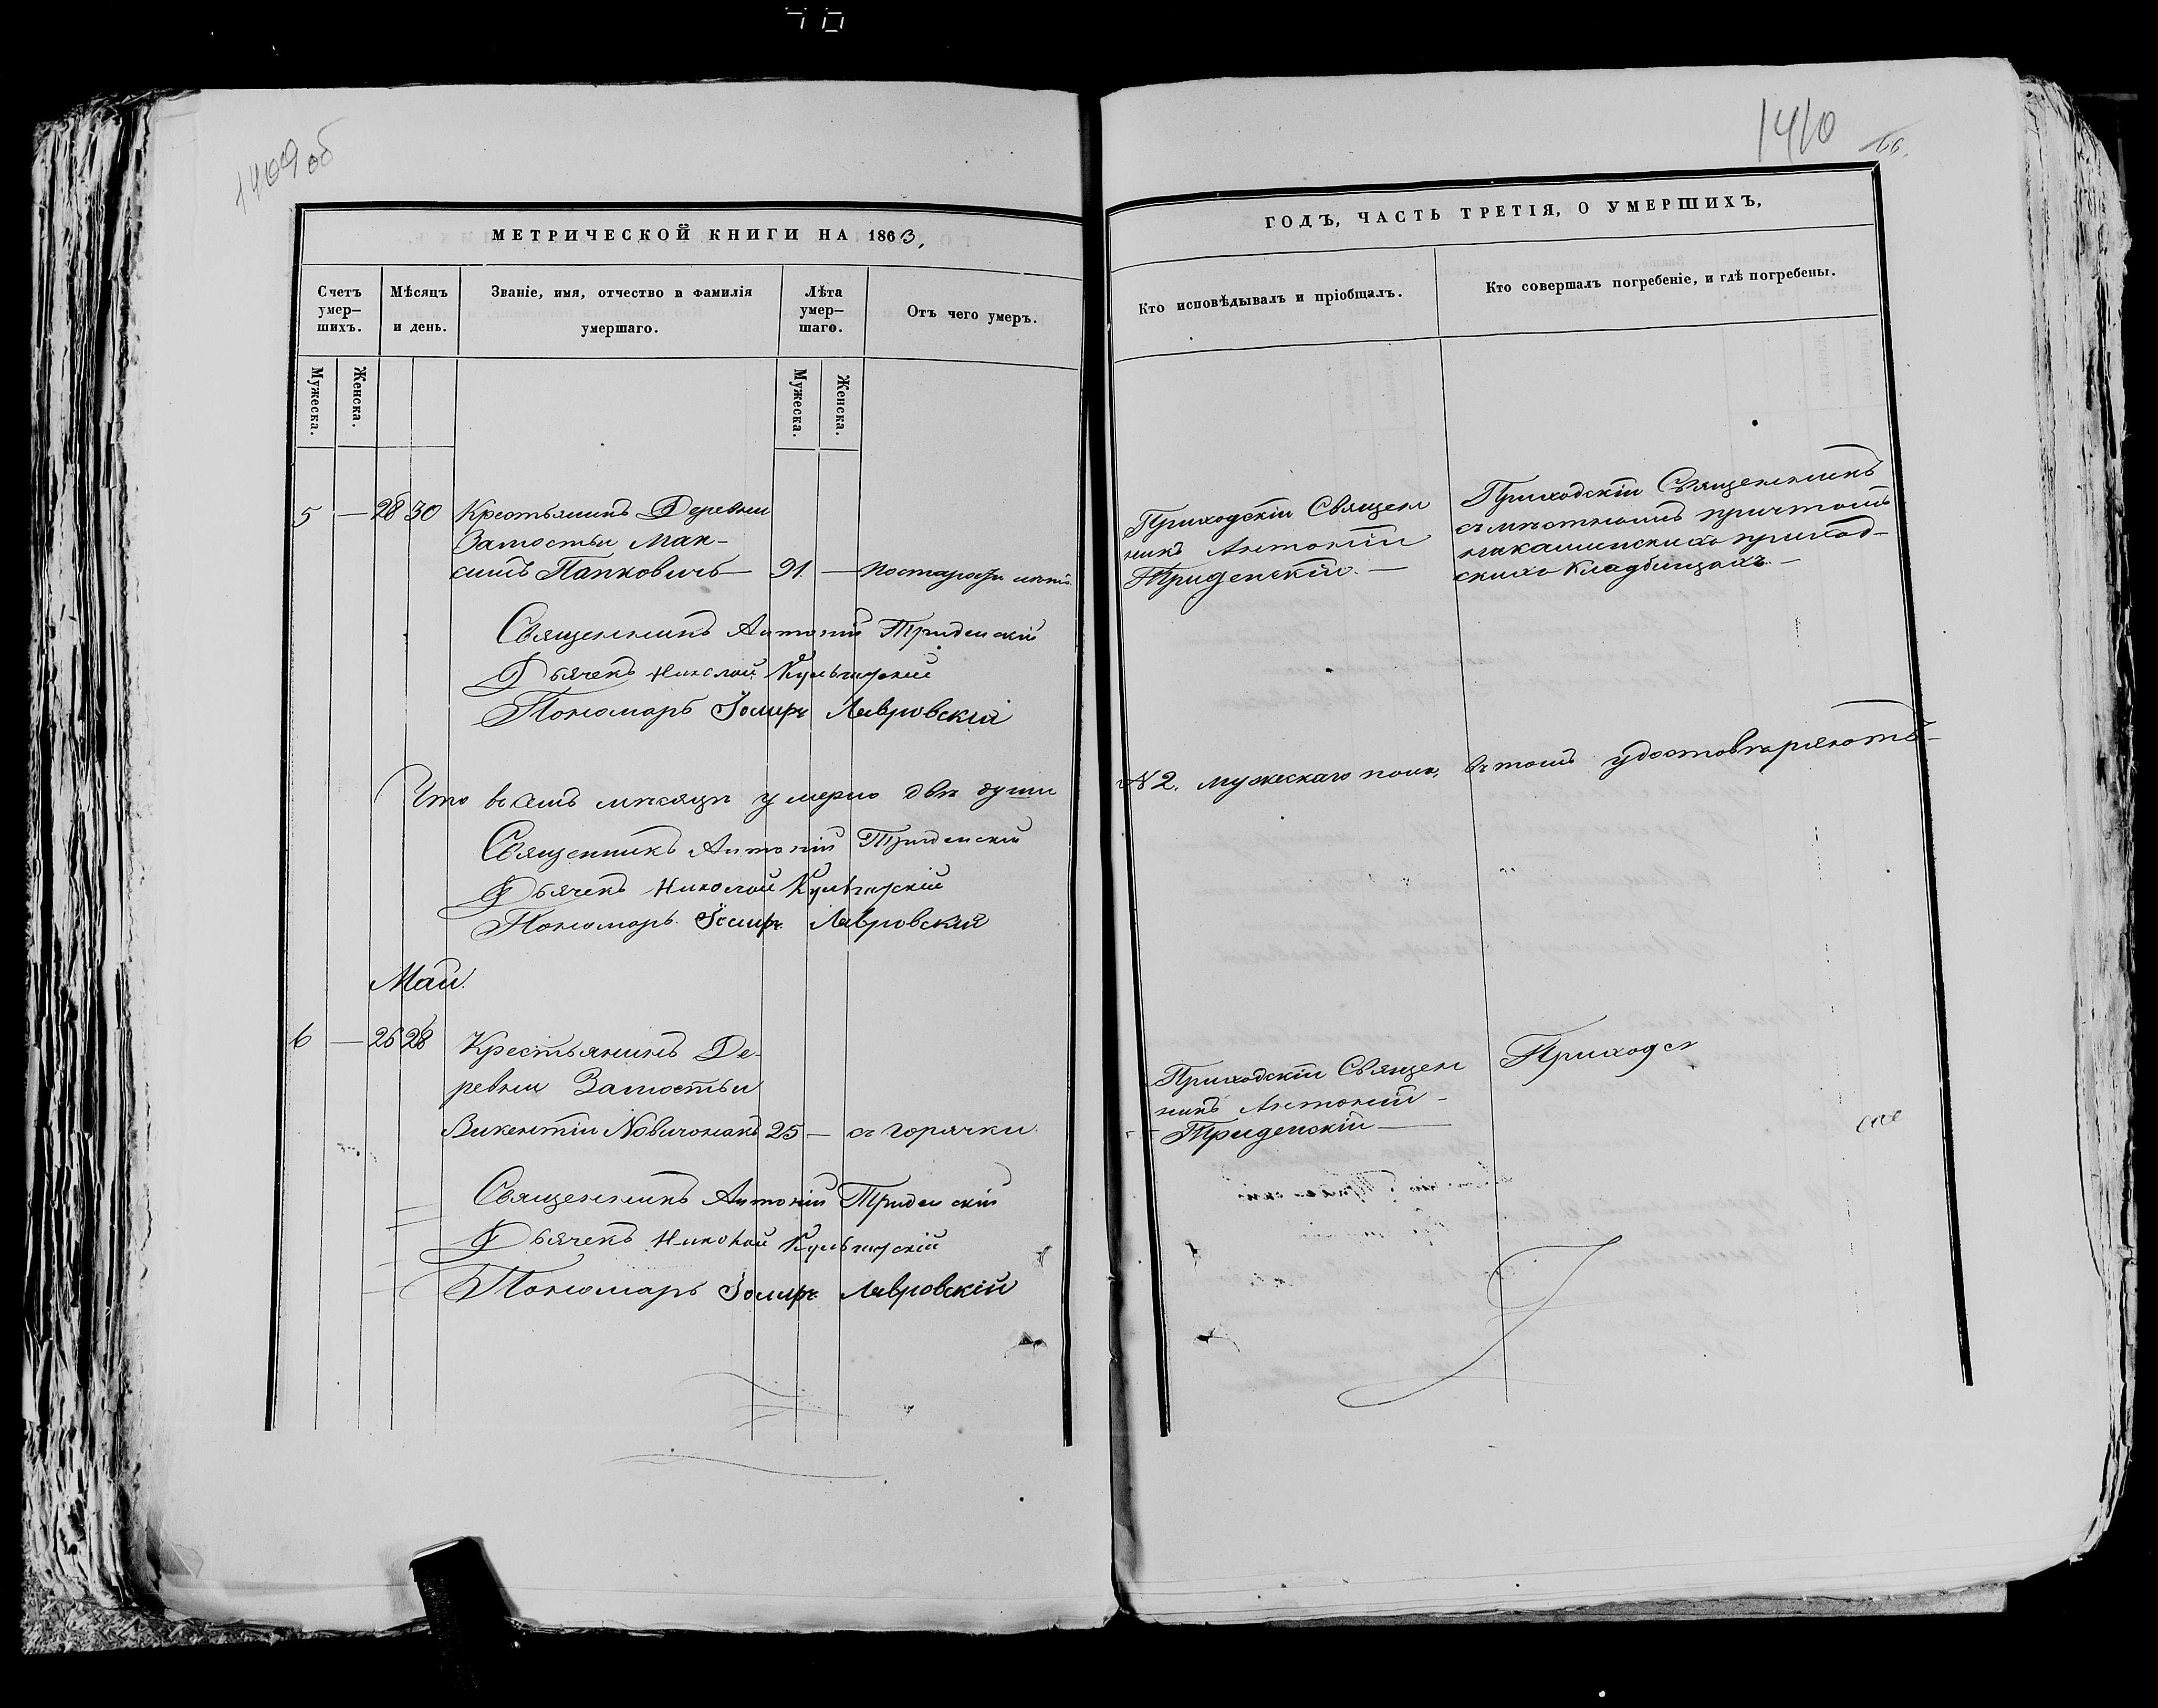 1409 об
1410
66.
МЕТРИЧЕСКОЙ КНИГИ НА 1863,
ГОДЪ, ЧАСТЬ ТРЕТІЯ, О УМЕРШИХЪ,
Счетъ умер—шихъ.
Мѣсяцъ и день.
Званіе, имя, отчество и фамилія умершаго.
Лѣта умер—шаго.
Отъ чего умеръ.
Кто исповѣдывалъ и пріобщалъ.
Кто совершалъ погребеніе, и гдѣ погребены.
Мужеска.
Женска.
Мужеска.
Женска.
5 — 28 30 Крестьянинъ Деревни
Замостьи Мак-
симъ Папковичъ — 91 — по старости лѣтъ.
Приходскій Священ
никъ Антоній
Триденскій. —
Приходскій Священникъ
съ мѣстнымъ причтомъ
на приход-
скихъ кладбищахъ. —
Священникъ Антоній Триденскій
Дьячекъ Николай
Пономарь Іосифъ Лавровскій
Что въ семъ мѣсяцѣ умерло двѣ души
№ 2. мужескаго пола, въ томъ удостовѣряютъ —
Священникъ Антоній Триденскій
Дьячекъ Николай
Пономарь Іосифъ Лавровскій
Май.
6 — 26 28 Крестьянинъ Де-
ревни Замостьи
Викентій Новичонакъ 25 — съ горячки.
Приходскій Священ
никъ Антоній —
Триденскій —
Приходск
Священникъ Антоній Триденскій
Дьячекъ Николай
Пономарь Іосифъ Лавровскій